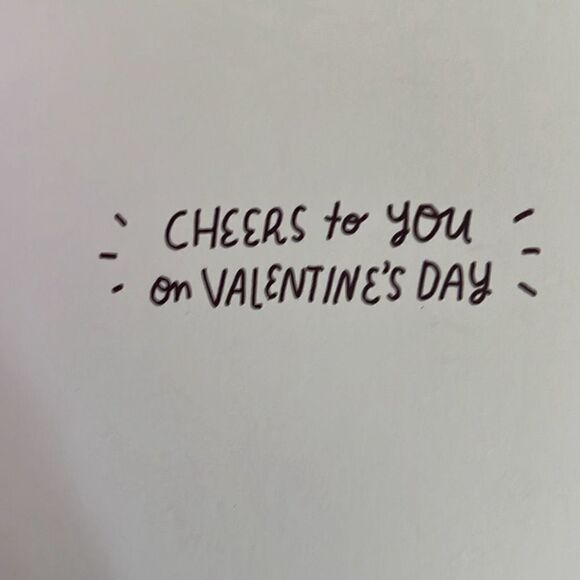 CHEERS to YOU
on VALENTINE'S DAY